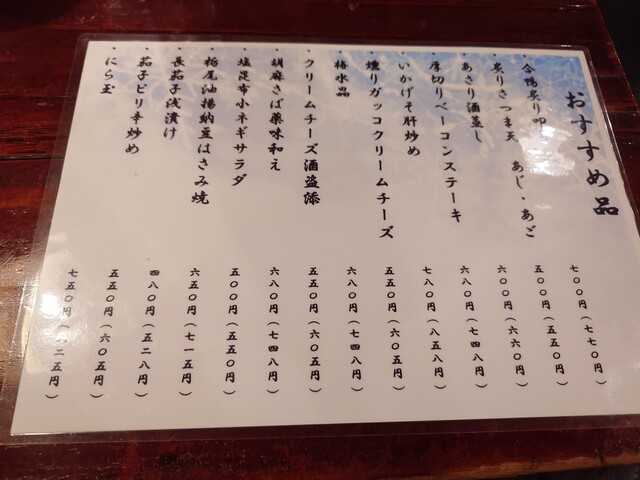 おすすめ品
・合鴨炙り叩 七〇〇円(七七〇円)
・炙りさつま天 あじ・あご 五〇〇円(五五〇円)
・あさり酒蒸し 六〇〇円(六六〇円)
・厚切りベーコンステーキ 六八〇円(七四八円)
・いかげそ肝炒め 七八〇円(八五八円)
・燻りガッコクリームチーズ 五五〇円(六〇五円)
・梅水晶 六八〇円(七四八円)
・クリームチーズ酒盗添 五五〇円(六〇五円)
・胡麻さば薬味和え 六八〇円(七四八円)
・塩昆布小ネギサラダ 五〇〇円(五五〇円)
・栃尾油揚納豆はさみ焼 六五〇円(七一五円)
・長茄子浅漬け 四八〇円(五二八円)
・茄子ピリ辛炒め 五五〇円(六〇五円)
・にら玉 七五〇円(八二五円)